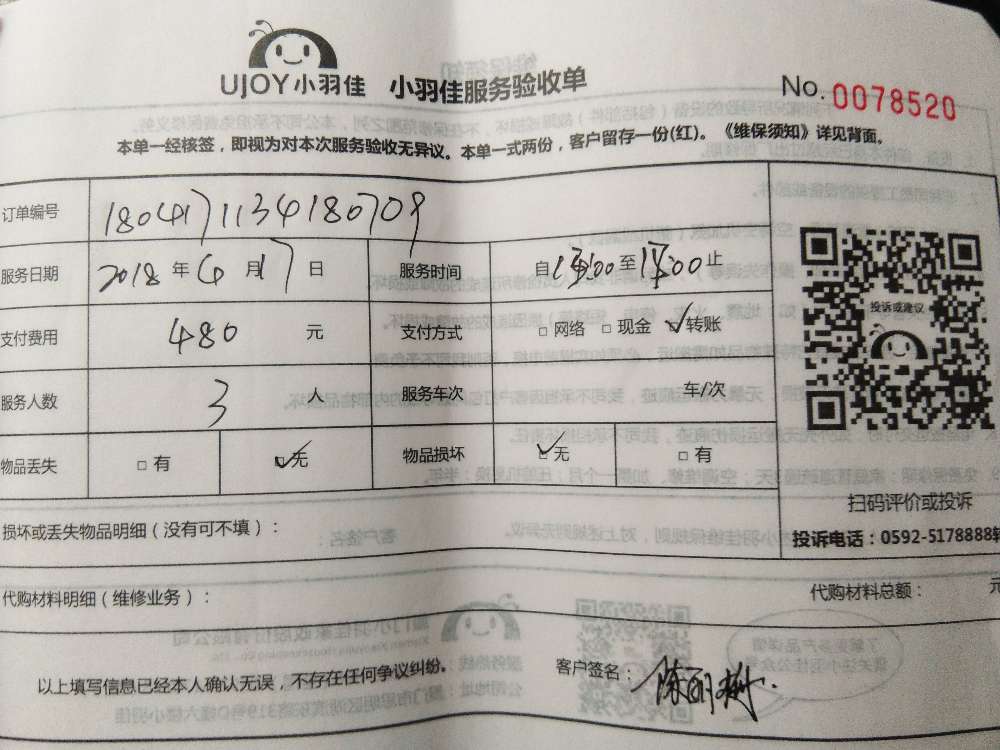 UJOY小羽佳 小羽佳服务验收单 No. 0078520
本单一经核签，即视为对本次服务验收无异议。本单一式两份，客户留存一份(红)。《维保须知》详见背面。
订单编号 1804171134180709
服务日期 2018 年 4 月 17 日 服务时间 自 :00 至 :00 止
支付费用 480 元 支付方式 □ 网络 □ 现金 ☑ 转账
服务人数 3 人 服务车次 车/次
物品丢失 □ 有 ☑ 无 物品损坏 ☑ 无 □ 有
投诉或建议
扫码评价或投诉
投诉电话：0592-5178888转
损坏或丢失物品明细（没有可不填）：
代购材料明细（维修业务）： 代购材料总额： 元
以上填写信息已经本人确认无误，不存在任何争议纠纷。 客户签名：